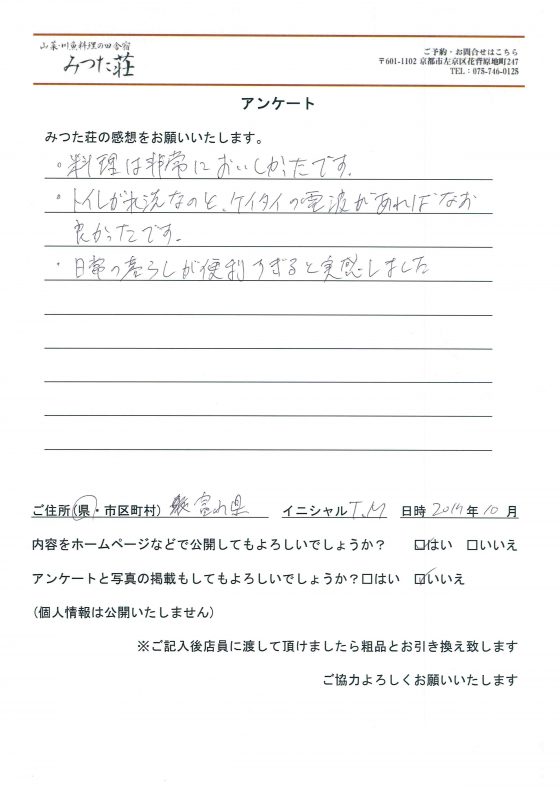 山菜・川魚料理の田舎宿
みつた荘
ご予約・お問合せはこちら
〒601-1102 京都市左京区花背原地町247
TEL:075-746-0125
アンケート
みつた荘の感想をお願いいたします。
・料理は非常においしかったです。
・トイレが水洗なのと、ケイタイの電波があればなお
良かったです。
・日常の暮らしが便利すぎると実感しました
ご住所(県・市区町村) 富山県 イニシャル T.M 日時 2014年10月
内容をホームページなどで公開してもよろしいでしょうか? ☑はい □いいえ
アンケートと写真の掲載もしてもよろしいでしょうか?□はい ☑いいえ
(個人情報は公開いたしません)
※ご記入後店員に渡して頂けましたら粗品とお引き換え致します
ご協力よろしくお願いいたします